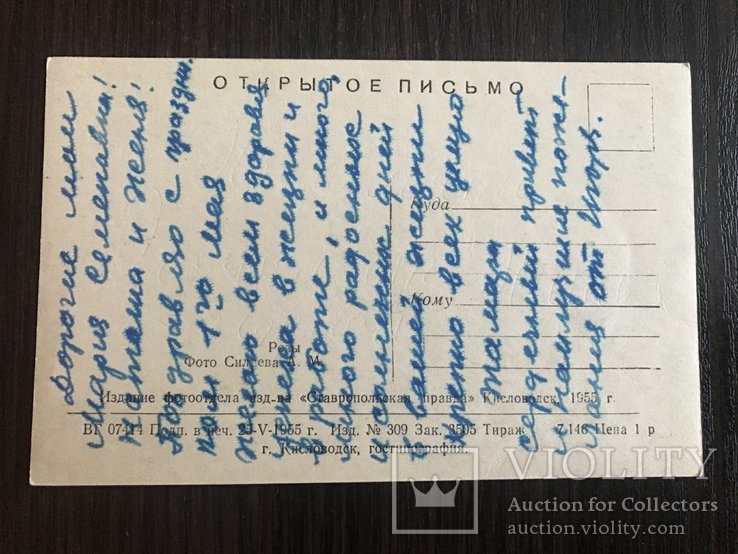 ОТКРЫТОЕ ПИСЬМО
Куда
Кому
Розы
Фото Силаева А. М.
Издание фотоотдела изд-ва «Ставропольская правда» Кисловодск, 1955 г.
ВГ 07414 Подп. в печ. 25-V-1955 г. Изд. № 309 Зак. 3505 Тираж 7.146 Цена 1 р
г. Кисловодск, гостипография.
Дорогие мои
Мария Семеновна!
и Женя!
Поздравляю с праздни.
ком 1го мая
Желаю всем здоровья
успеха в жизни и
в работе, и много,
много радостных
и солнечных дней
в вашей жизни
крепко всех целую
Тамара
сердечный привет
и наилучшие поже-
лания от Игоря.
VIOLITY
Auction for Collectors
auction.violity.com